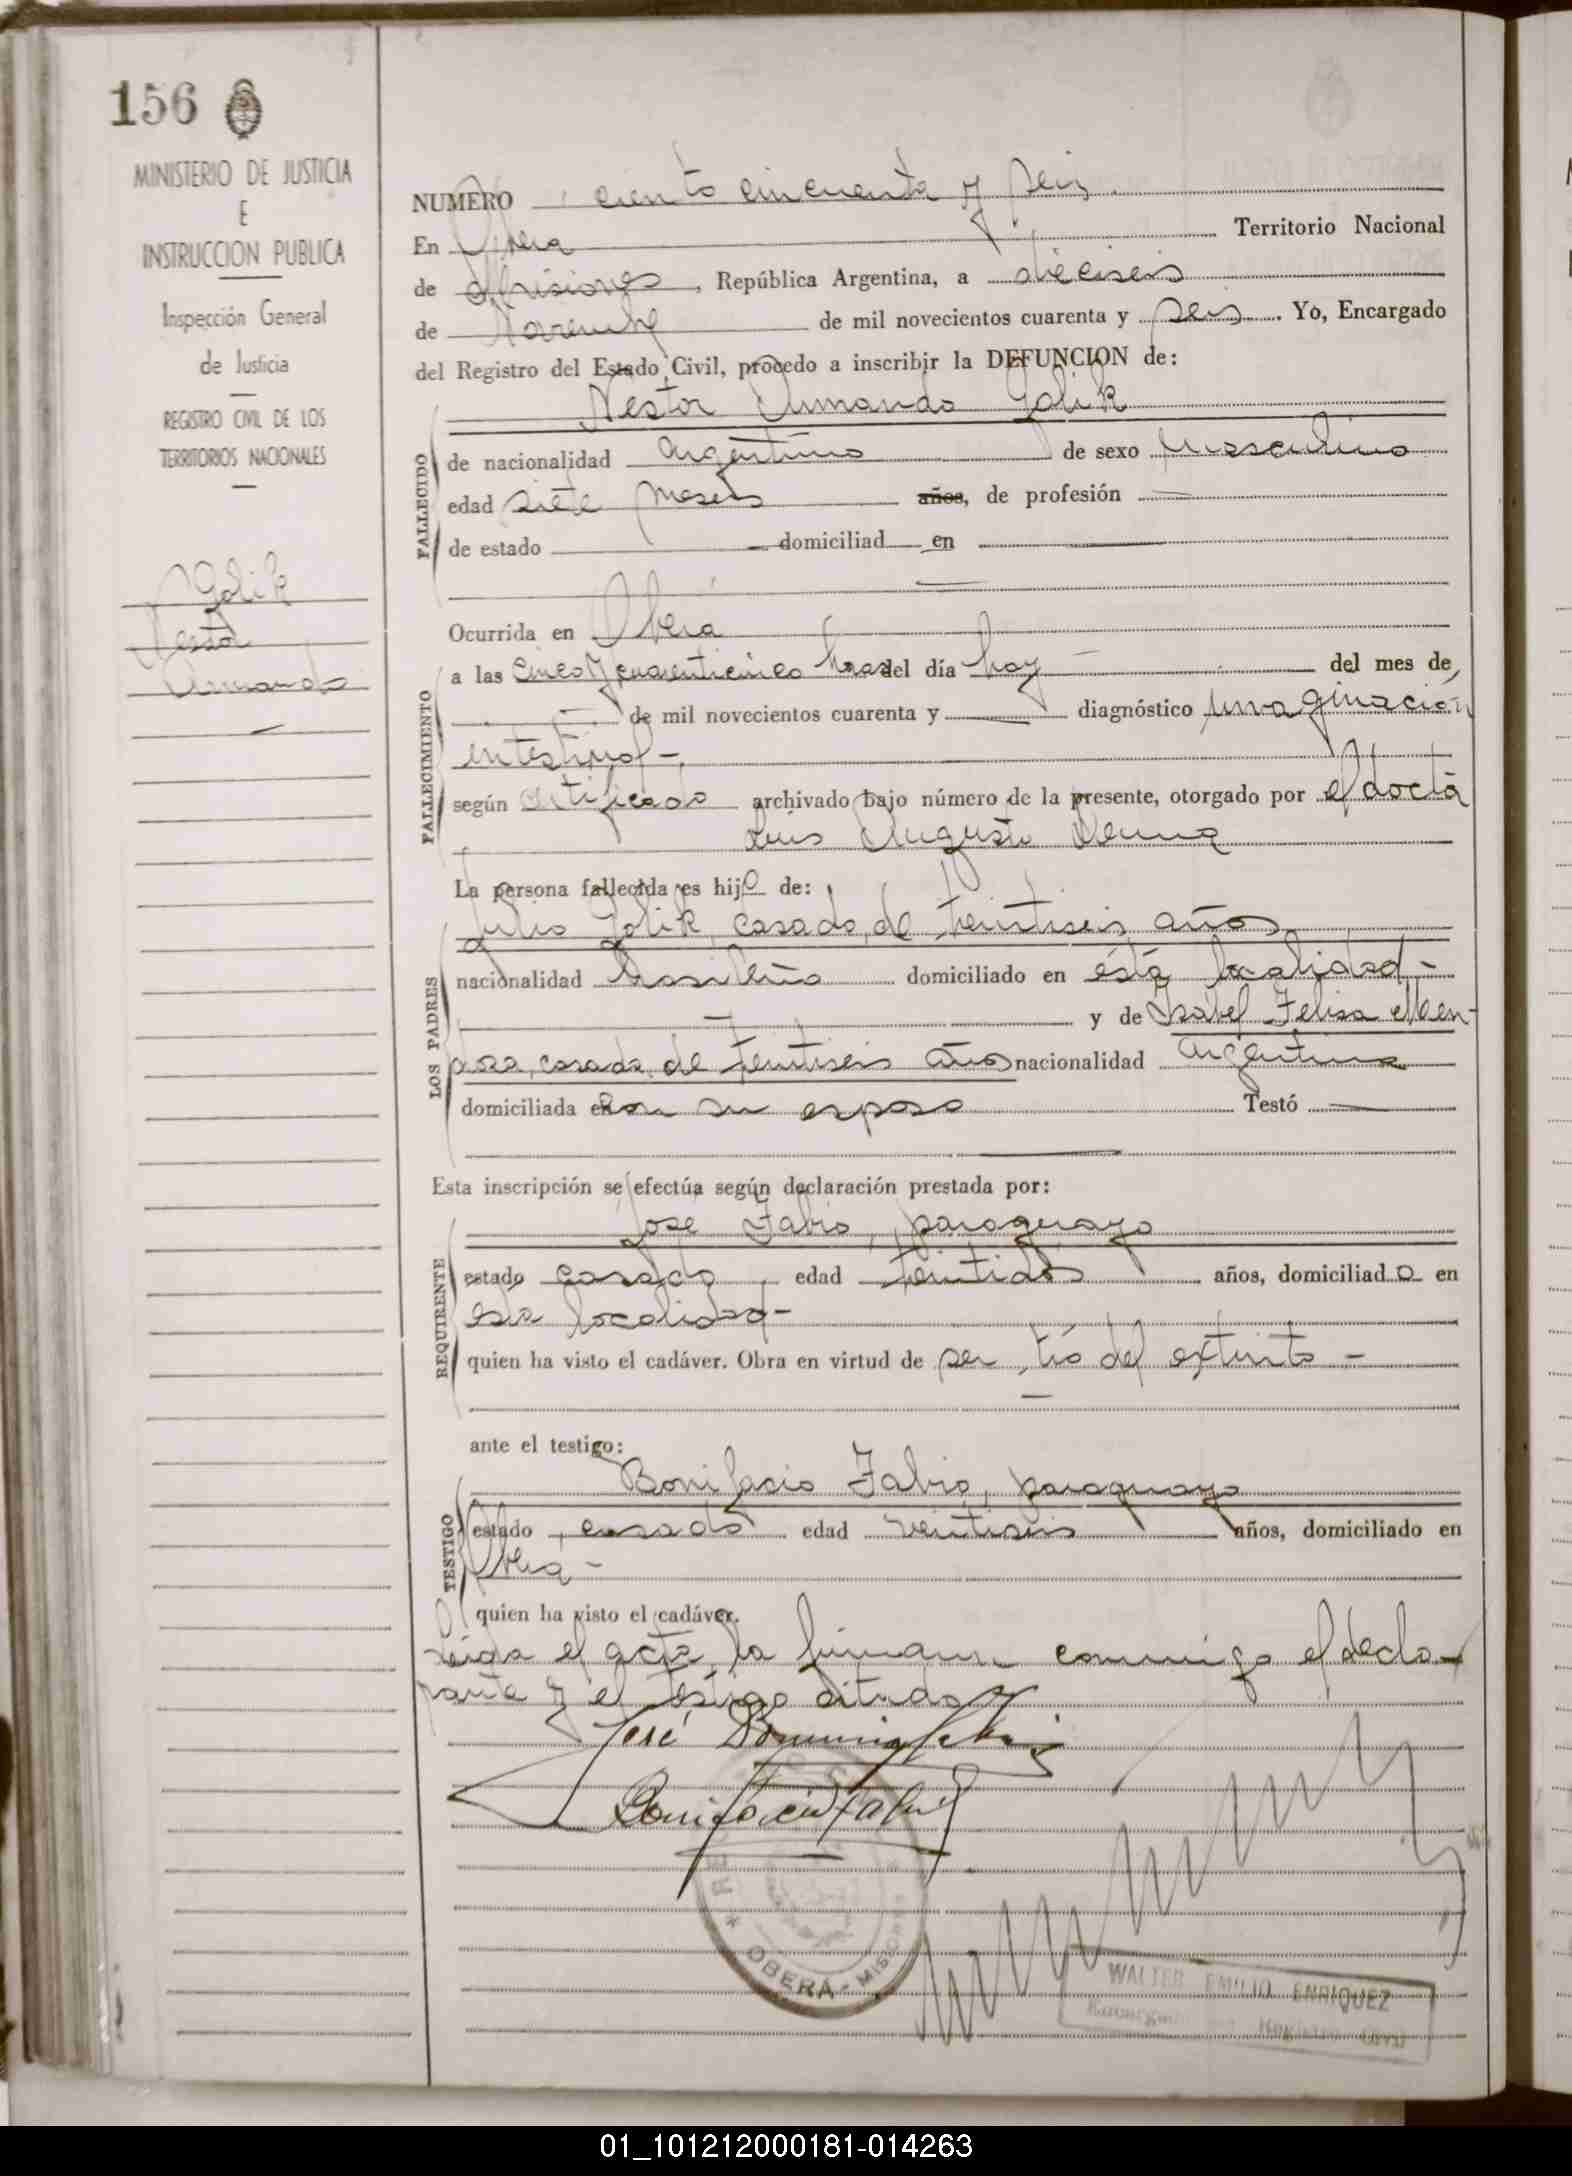 156
MINISTERIO DE JUSTICIA
E
INSTRUCCION PUBLICA
Inspección General
de Justicia
REGISTRO CIVIL DE LOS
TERRITORIOS NACIONALES
Golik
Nestor
Armando
NUMERO ciento cincuenta y seis
En Obera Territorio Nacional
de Misiones, República Argentina, a dieciseis
de Noviembre de mil novecientos cuarenta y seis. Yo, Encargado
del Registro del Estado Civil, procedo a inscribir la DEFUNCION de:
Nestor Armando Golik
FALLECIDO
de nacionalidad argentino de sexo masculino
edad siete meses años, de profesión —
de estado — domiciliad en —
FALLECIMIENTO
Ocurrida en Oberá
a las cinco y cuarenticinco horas del día hoy — del mes de
— de mil novecientos cuarenta y — diagnóstico invaginación
intestinal -
según certificado archivado bajo número de la presente, otorgado por el doctor
Luis Augusto
La persona fallecida es hijo de:
LOS PADRES
Julio Golik, casado, de treintiseis años
nacionalidad brasileño domiciliado en ésta localidad -
— y de Isabel Felisa Men-
doza, casada, de treintiseis años nacionalidad argentina
domiciliada en con su esposo Testó —
Esta inscripción se efectúa según declaración prestada por:
REQUIRENTE
José Fabio, paraguayo
estado casado, edad treintidos años, domiciliado en
esta localidad -
quien ha visto el cadáver. Obra en virtud de ser tío del extinto -
ante el testigo:
TESTIGO
Bonifacio Fabio, paraguayo
estado casado edad veintiseis años, domiciliado en
Obera -
quien ha visto el cadáver.
Leida el acta, la firman conmigo el decla-
rante y el testigo citados
José
Bonifacio Fabio
OBERÁ - MISIONES
WALTER EMILIO ENRIQUEZ
Encargado del Registro Civil
01_101212000181-014263